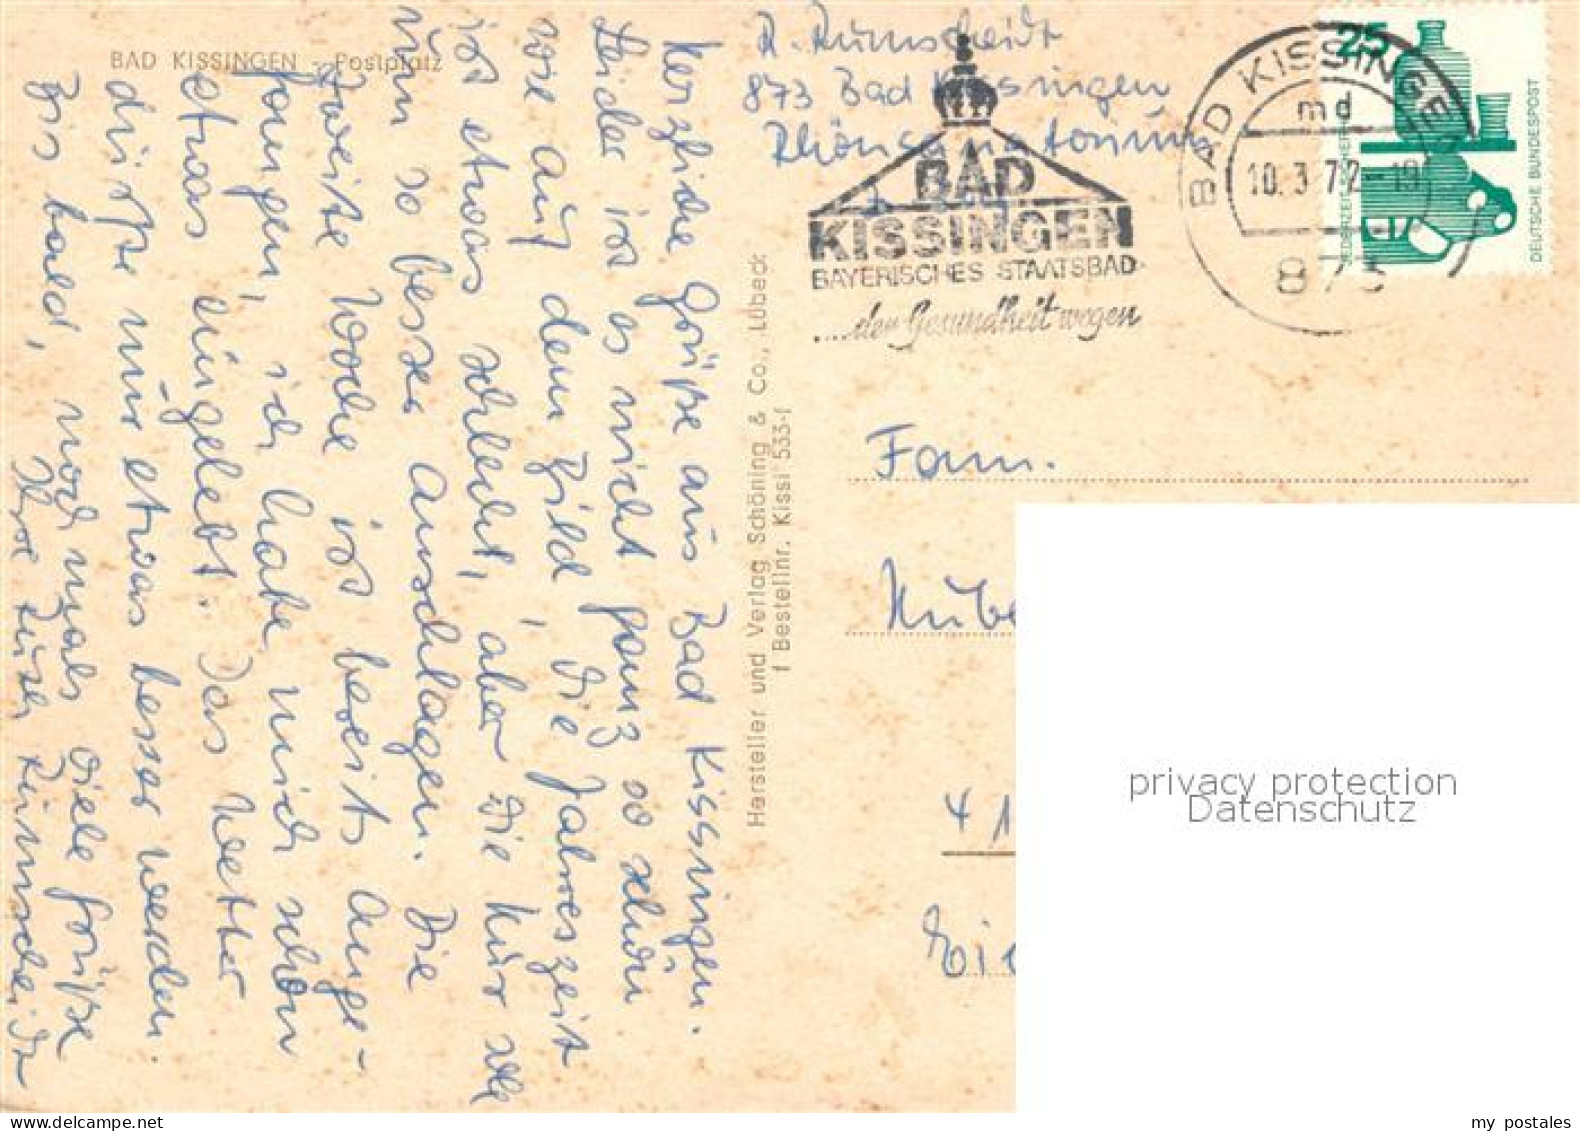 BAD KISSINGEN - Postplatz
R. Rumscheidt
873 Bad Kissingen
Rhönsanatorium
BAD
KISSINGEN
BAYERISCHES STAATSBAD
....der Gesundheit wegen
BAD KISSINGEN
md
10.3.72-19
873
25
JEDERZEIT SICHERHEIT
DEUTSCHE BUNDESPOST
Herzliche Grüße aus Bad Kissingen.
Leider ist es nicht ganz so schön
wie auf dem Bild, die Jahreszeit
ist etwas schlecht, aber die Kur
um so besser anschlagen. Die
zweite Woche ist bereits ange-
gangen, ich habe mich schon
etwas eingelebt. Das Wetter
dürfte nur etwas besser werden.
Bis bald, noch mals viele Grüße
Ihre Rumscheidt
Hersteller und Verlag Schöning & Co., Lübeck
f Bestellnr. Kissi 533-f
Fam.
Hübe
41
privacy protection
Datenschutz
my postales